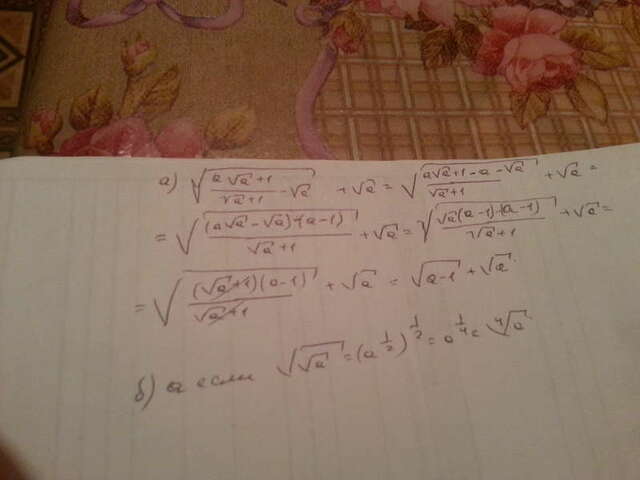 а) √((a√a+1)/(√a+1) - √a) + √a = √((a√a+1-a-√a)/(√a+1)) + √a =
= √(((a√a-√a)-(a-1))/(√a+1)) + √a = √((√a(a-1)-(a-1))/(√a+1)) + √a =
= √(((√a+1)(a-1))/(√a+1)) + √a = √(a-1) + √a.
б) а если √√a = (a^(1/2))^(1/2) = a^(1/4) = ∜a